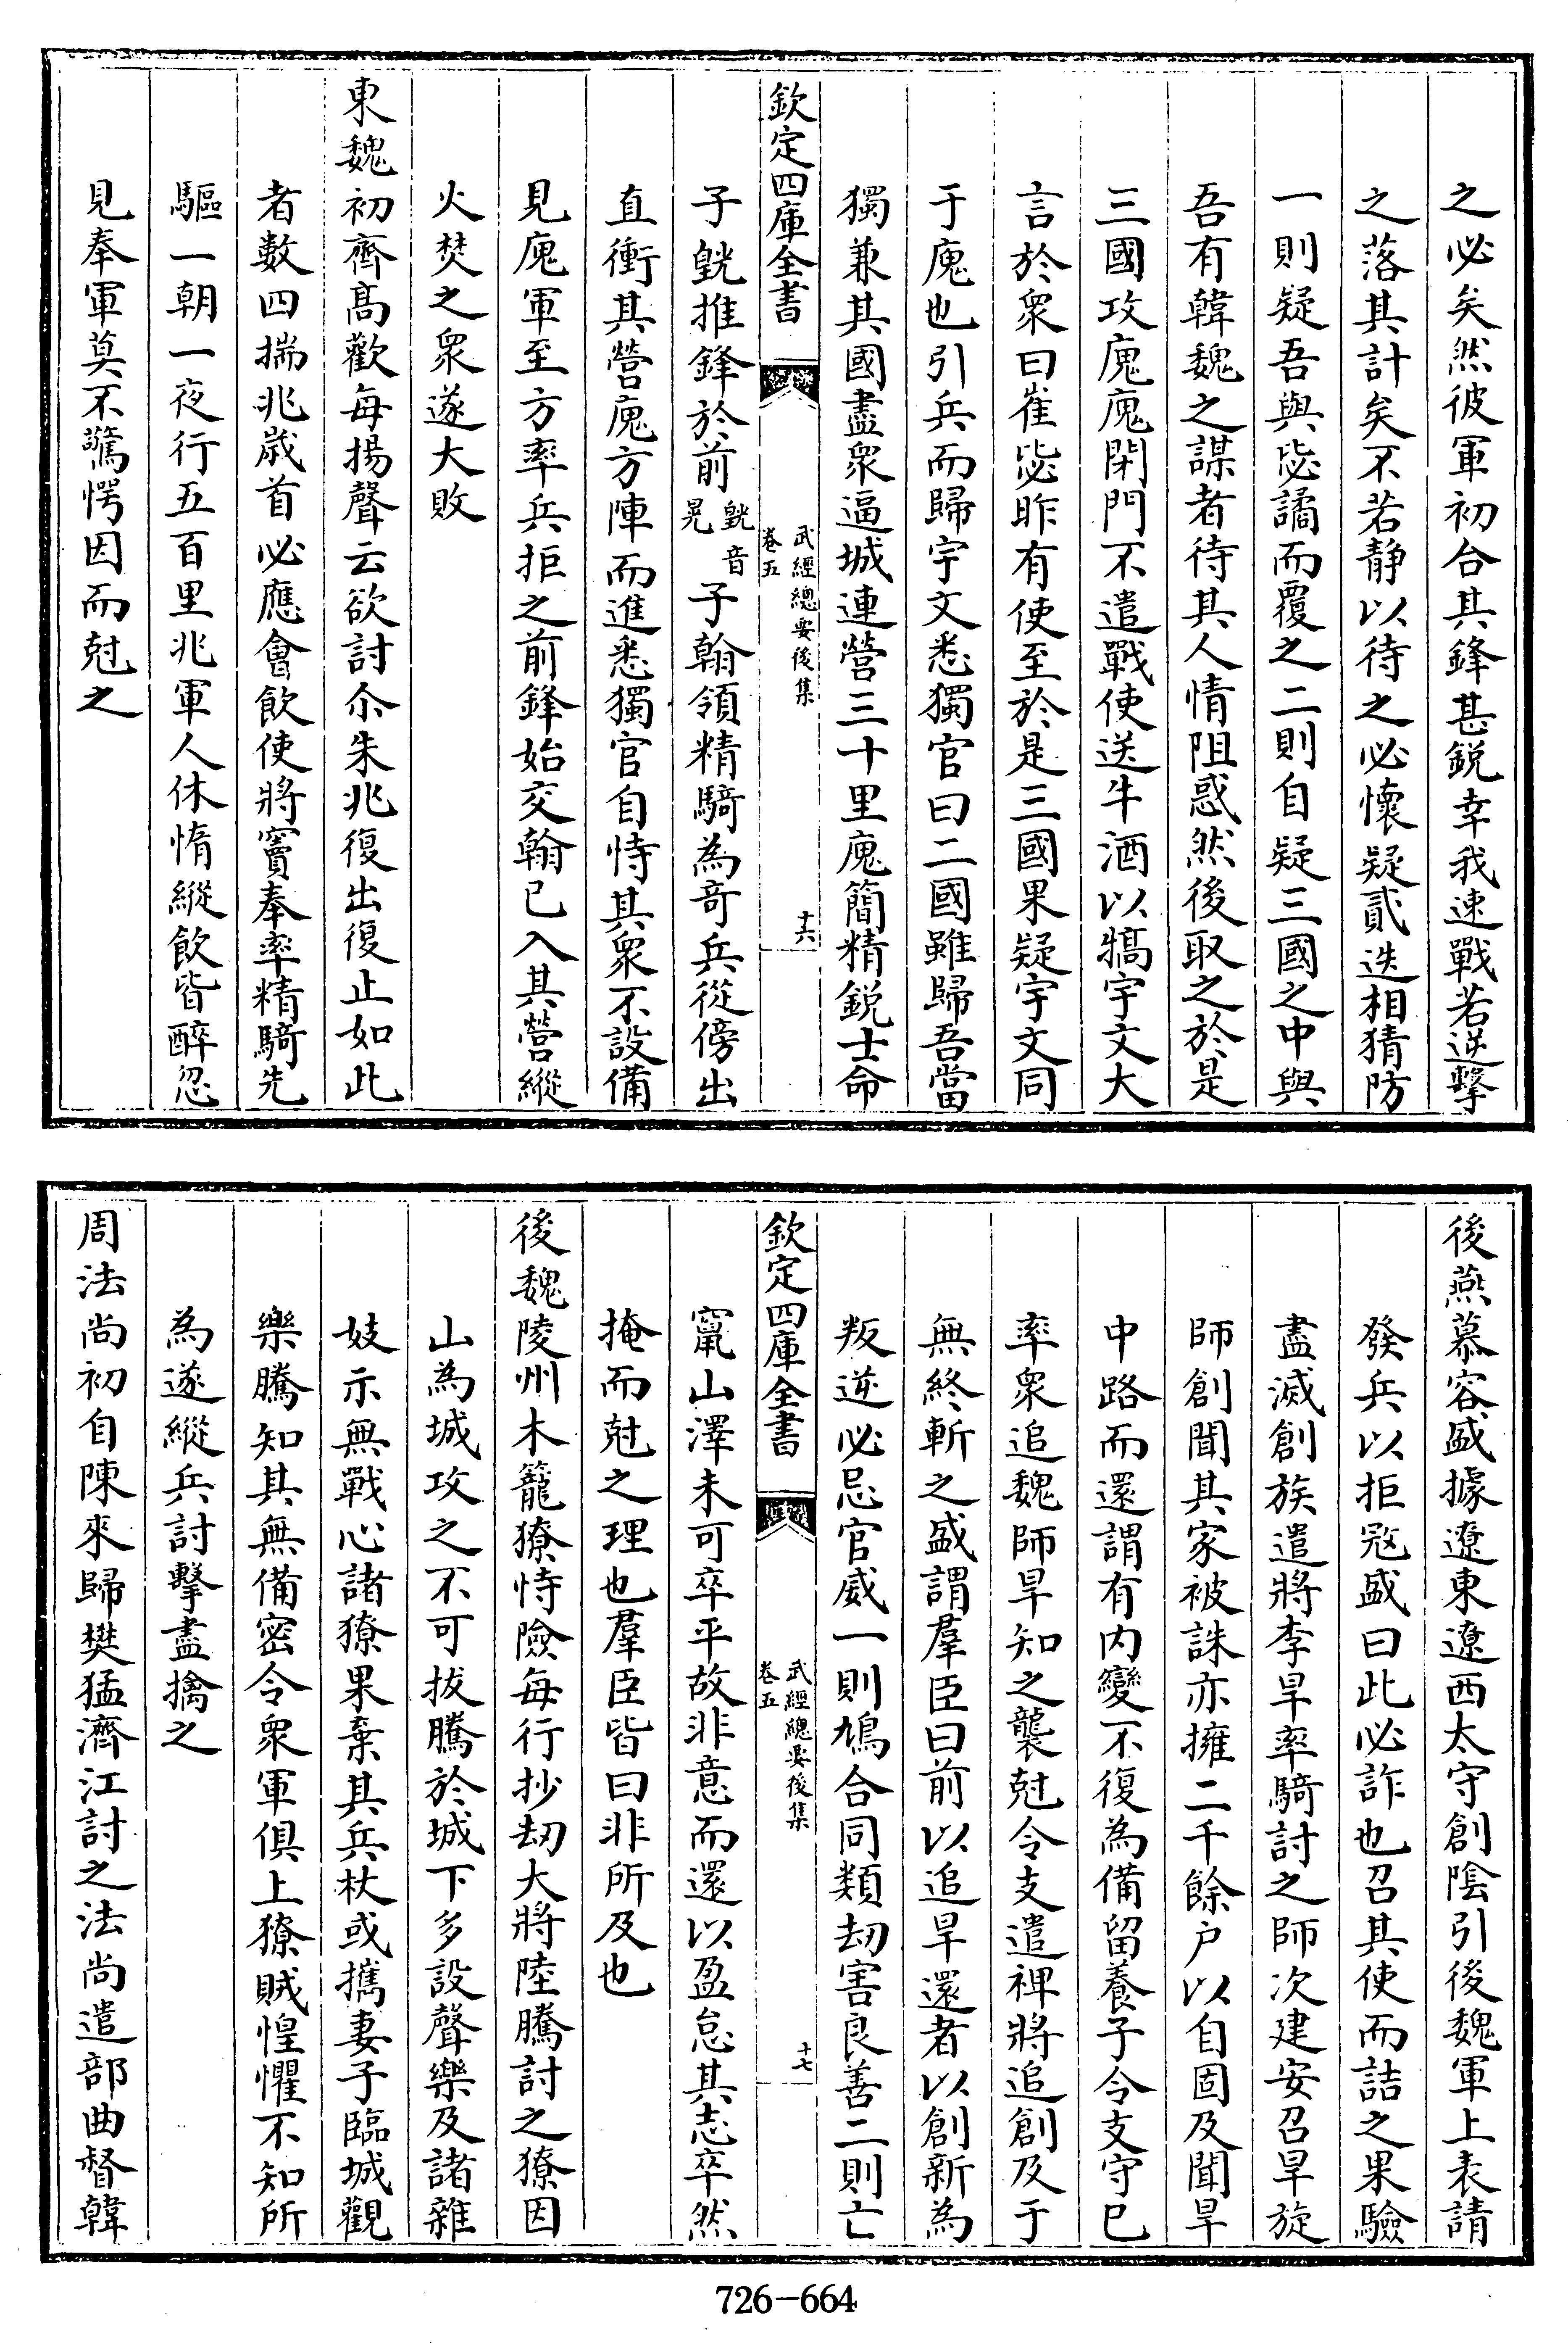 之必矣然彼軍初合其鋒甚鋭幸我速戰若逆擊
之落其計矣不若靜以待之必懷疑貳迭相猜防
一則疑吾與毖譎而覆之二則自疑三國之中與
吾有韓魏之謀者待其人情阻惑然後取之於是
三國攻廆廆閉門不遣戰使送牛酒以犒宇文大
言於衆曰崔毖昨有使至於是三國果疑宇文同
于廆也引兵而歸宇文悉獨官曰二國雖歸吾當
獨兼其國盡衆逼城連營三十里廆簡精鋭士命
欽定四庫全書
武經總要後集
卷五
十六
子皝推鋒於前皝音晃子翰領精騎為奇兵從傍出
直衝其營廆方陣而進悉獨官自恃其衆不設備
見廆軍至方率兵拒之前鋒始交翰已入其營縱
火焚之衆遂大敗
東魏初齊髙歡每揚聲云欲討尒朱兆復出復止如此
者數四揣兆歲首必應會飲使將竇奉率精騎先
驅一朝一夜行五百里兆軍人休惰縱飲皆醉忽
見奉軍莫不驚愕因而尅之
後燕慕容盛據遼東遼西太守創陰引後魏軍上表請
發兵以拒冦盛曰此必詐也召其使而詰之果驗
盡滅創族遣將李旱率騎討之師次建安召旱旋
師創聞其家被誅亦擁二千餘户以自固及聞旱
中路而還謂有内變不復為備留養子令支守已
率衆追魏師旱知之襲尅令支遣禆將追創及于
無終斬之盛謂羣臣曰前以追旱還者以創新為
叛逆必忌官威一則鳩合同類刼害良善二則亡
欽定四庫全書
武經總要後集
卷五
十七
竄山澤未可卒平故非意而還以盈怠其志卒然
掩而尅之理也羣臣皆曰非所及也
後魏陵州木籠獠恃險每行抄刼大將陸騰討之獠因
山為城攻之不可拔騰於城下多設聲樂及諸雜
妓示無戰心諸獠果棄其兵杖或攜妻子臨城觀
樂騰知其無備密令衆軍俱上獠賊惶懼不知所
為遂縱兵討擊盡擒之
周法尚初自陳來歸樊猛濟江討之法尚遣部曲督韓
726-664